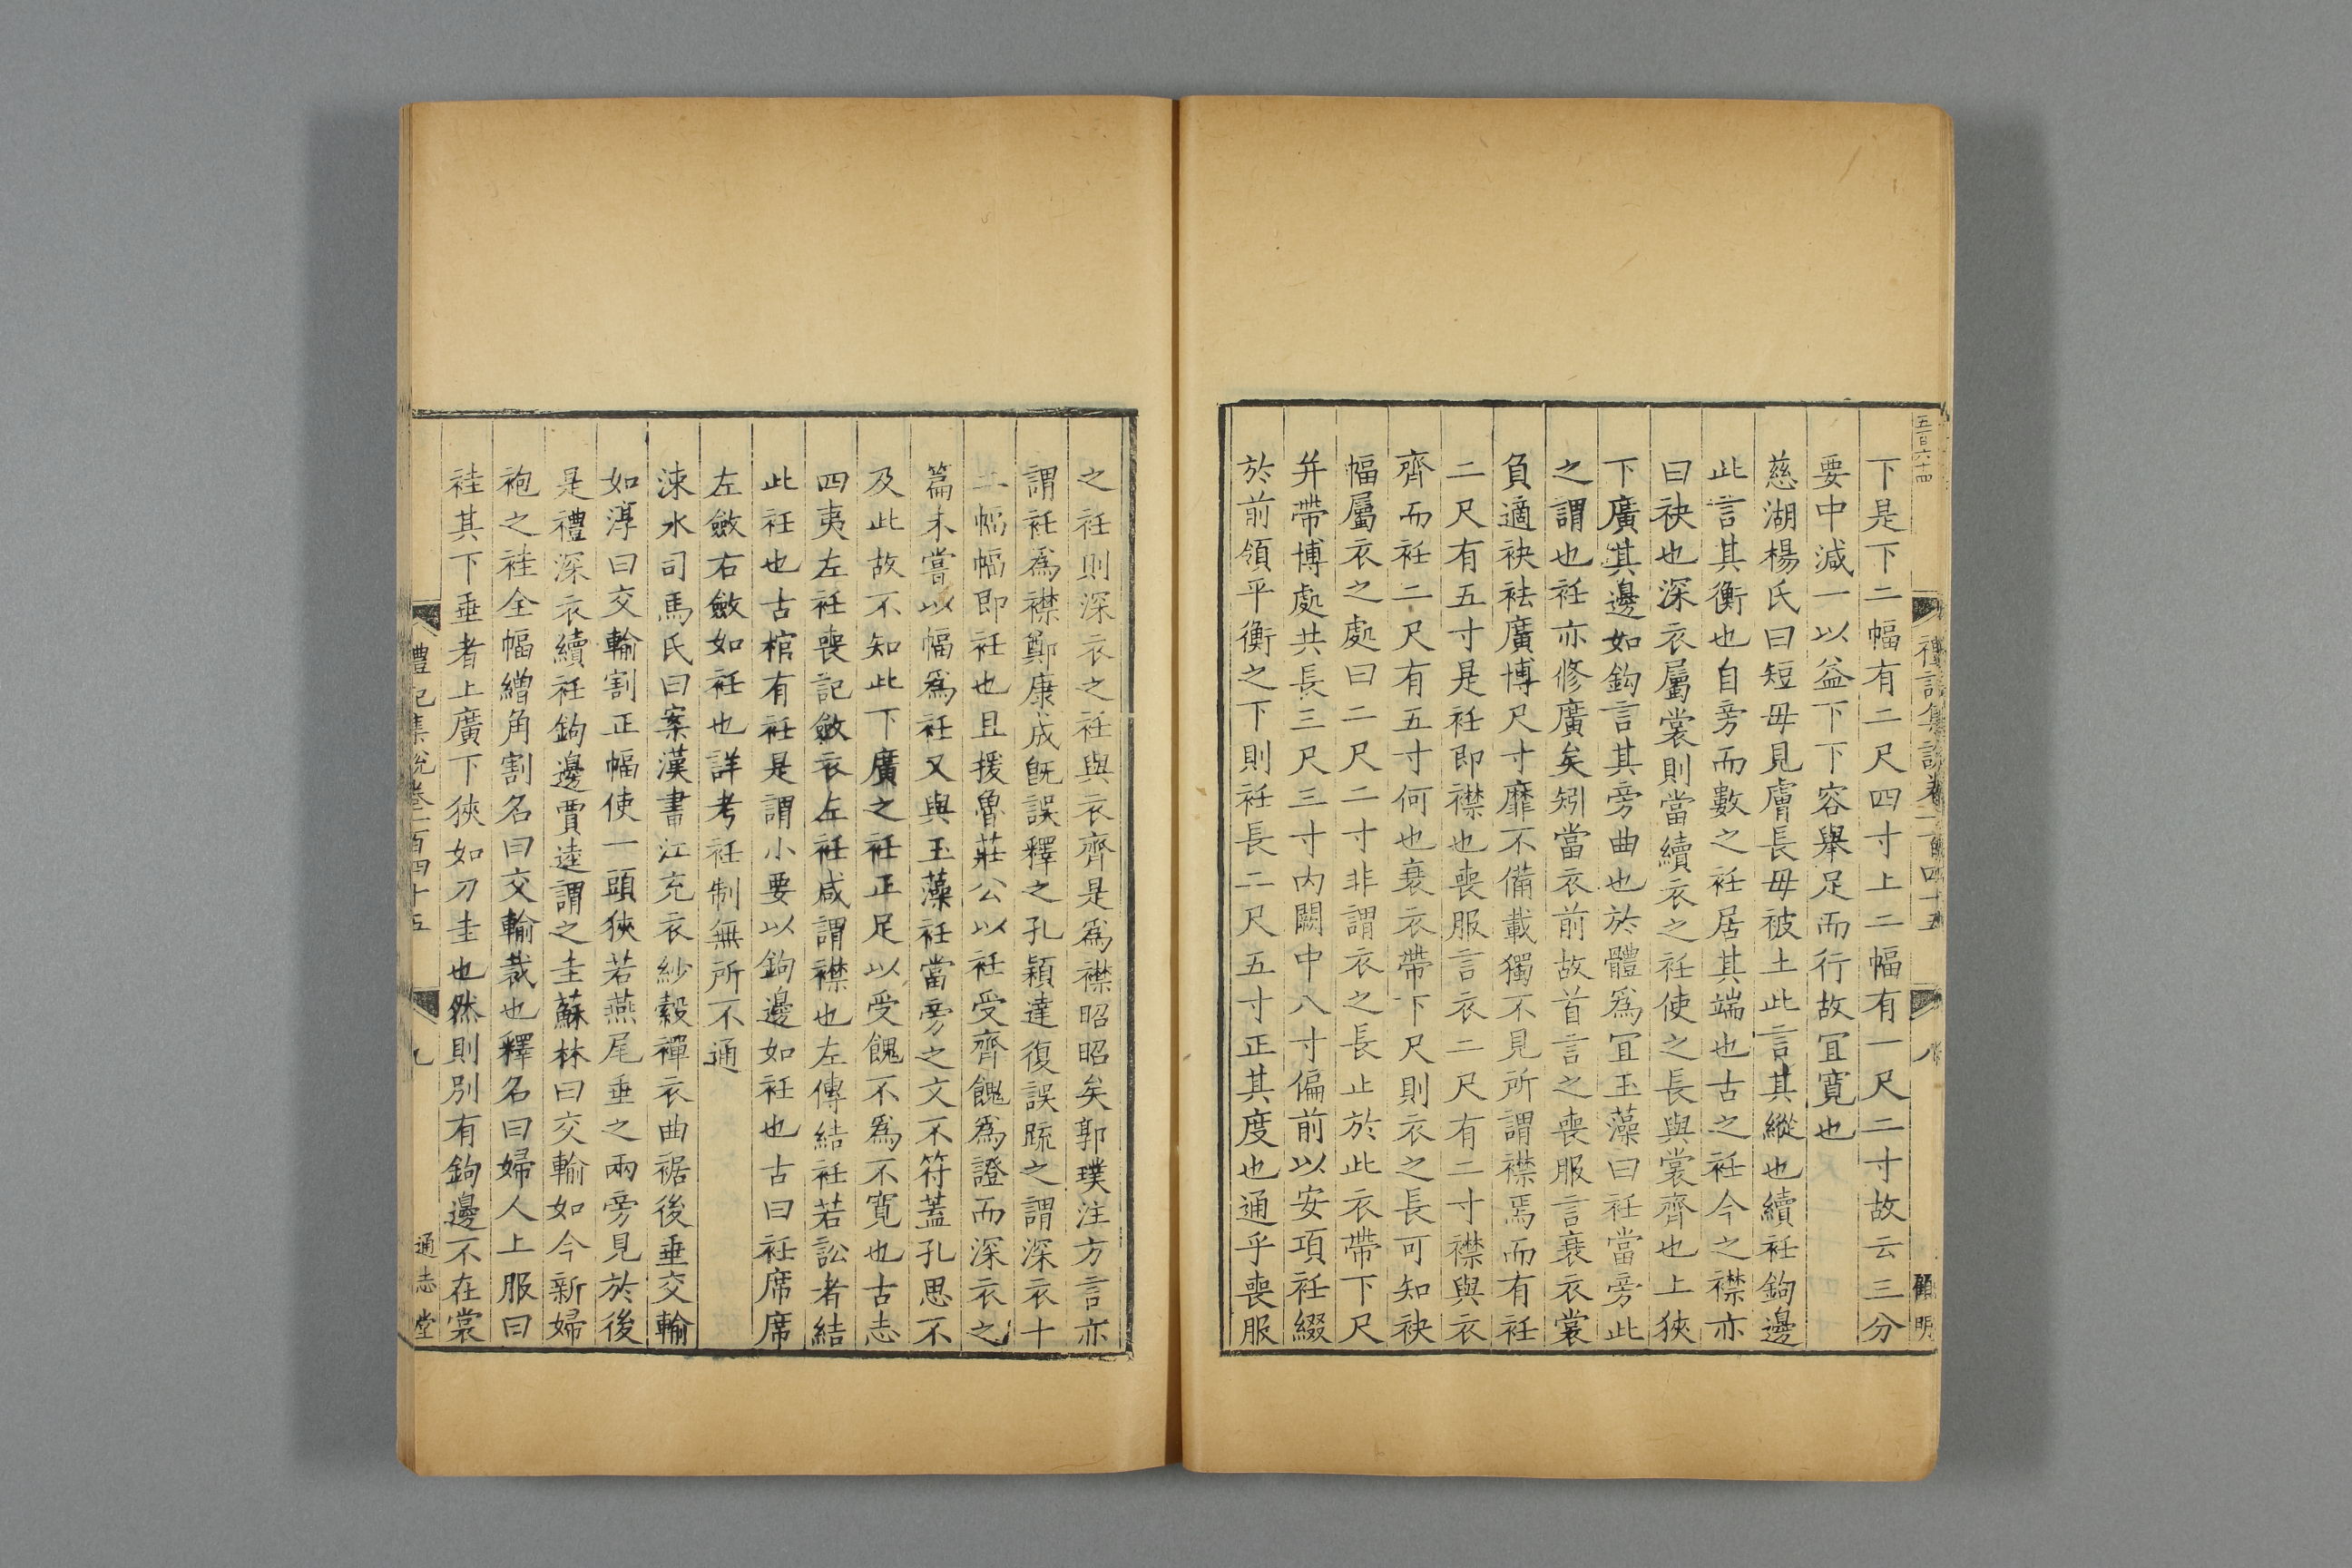 五百六十四
禮記集說卷一百四十五
八
顧明
下是下二幅有二尺四寸上二幅有一尺二寸故云三分
要中減一以益下下容舉足而行故宜寬也
慈湖楊氏曰短毋見膚長毋被土此言其縱也續衽鉤邊
此言其衡也自旁而數之衽居其端也古之衽今之襟亦
曰袂也深衣屬裳則當續衣之衽使之長與裳齊也上狹
下廣其邊如鉤言其旁曲也於體爲宜玉藻曰衽當旁此
之謂也衽亦修廣矣矧當衣前故首言之喪服言衰衣裳
負適袂袪廣博尺寸靡不備載獨不見所謂襟焉而有衽
二尺有五寸是衽即襟也喪服言衣二尺有二寸襟與衣
齊而衽二尺有五寸何也衰衣帶下尺則衣之長可知袂
幅屬衣之處曰二尺二寸非謂衣之長止於此衣帶下尺
并帶博處共長三尺三寸內闕中八寸偏前以安項衽綴
於前領平衡之下則衽長二尺五寸正其度也通乎喪服
之衽則深衣之衽與衣齊是爲襟昭昭矣郭璞注方言亦
謂衽爲襟鄭康成旣誤釋之孔穎達復誤䟽之謂深衣十
二幅幅即衽也且援魯莊公以衽受齊餽爲證而深衣之
篇未嘗以幅爲衽又與玉藻衽當旁之文不符蓋孔思不
及此故不知此下廣之衽正足以受餽不爲不寬也古志
四夷左衽喪記斂衣左衽咸謂襟也左傳結衽若訟者結
此衽也古棺有衽是謂小要以鉤邊如衽也古曰衽席席
左斂右斂如衽也詳考衽制無所不通
涑水司馬氏曰案漢書江充衣紗縠襌衣曲裾後垂交輸
如淳曰交輸割正幅使一頭狹若燕尾垂之兩旁見於後
是禮深衣續衽鉤邊賈逵謂之圭蘇林曰交輸如今新婦
袍之袿全幅繒角割名曰交輸裁也釋名曰婦人上服曰
袿其下垂者上廣下狹如刀圭也然則別有鉤邊不在裳
禮記集說卷一百四十五
九
通志堂